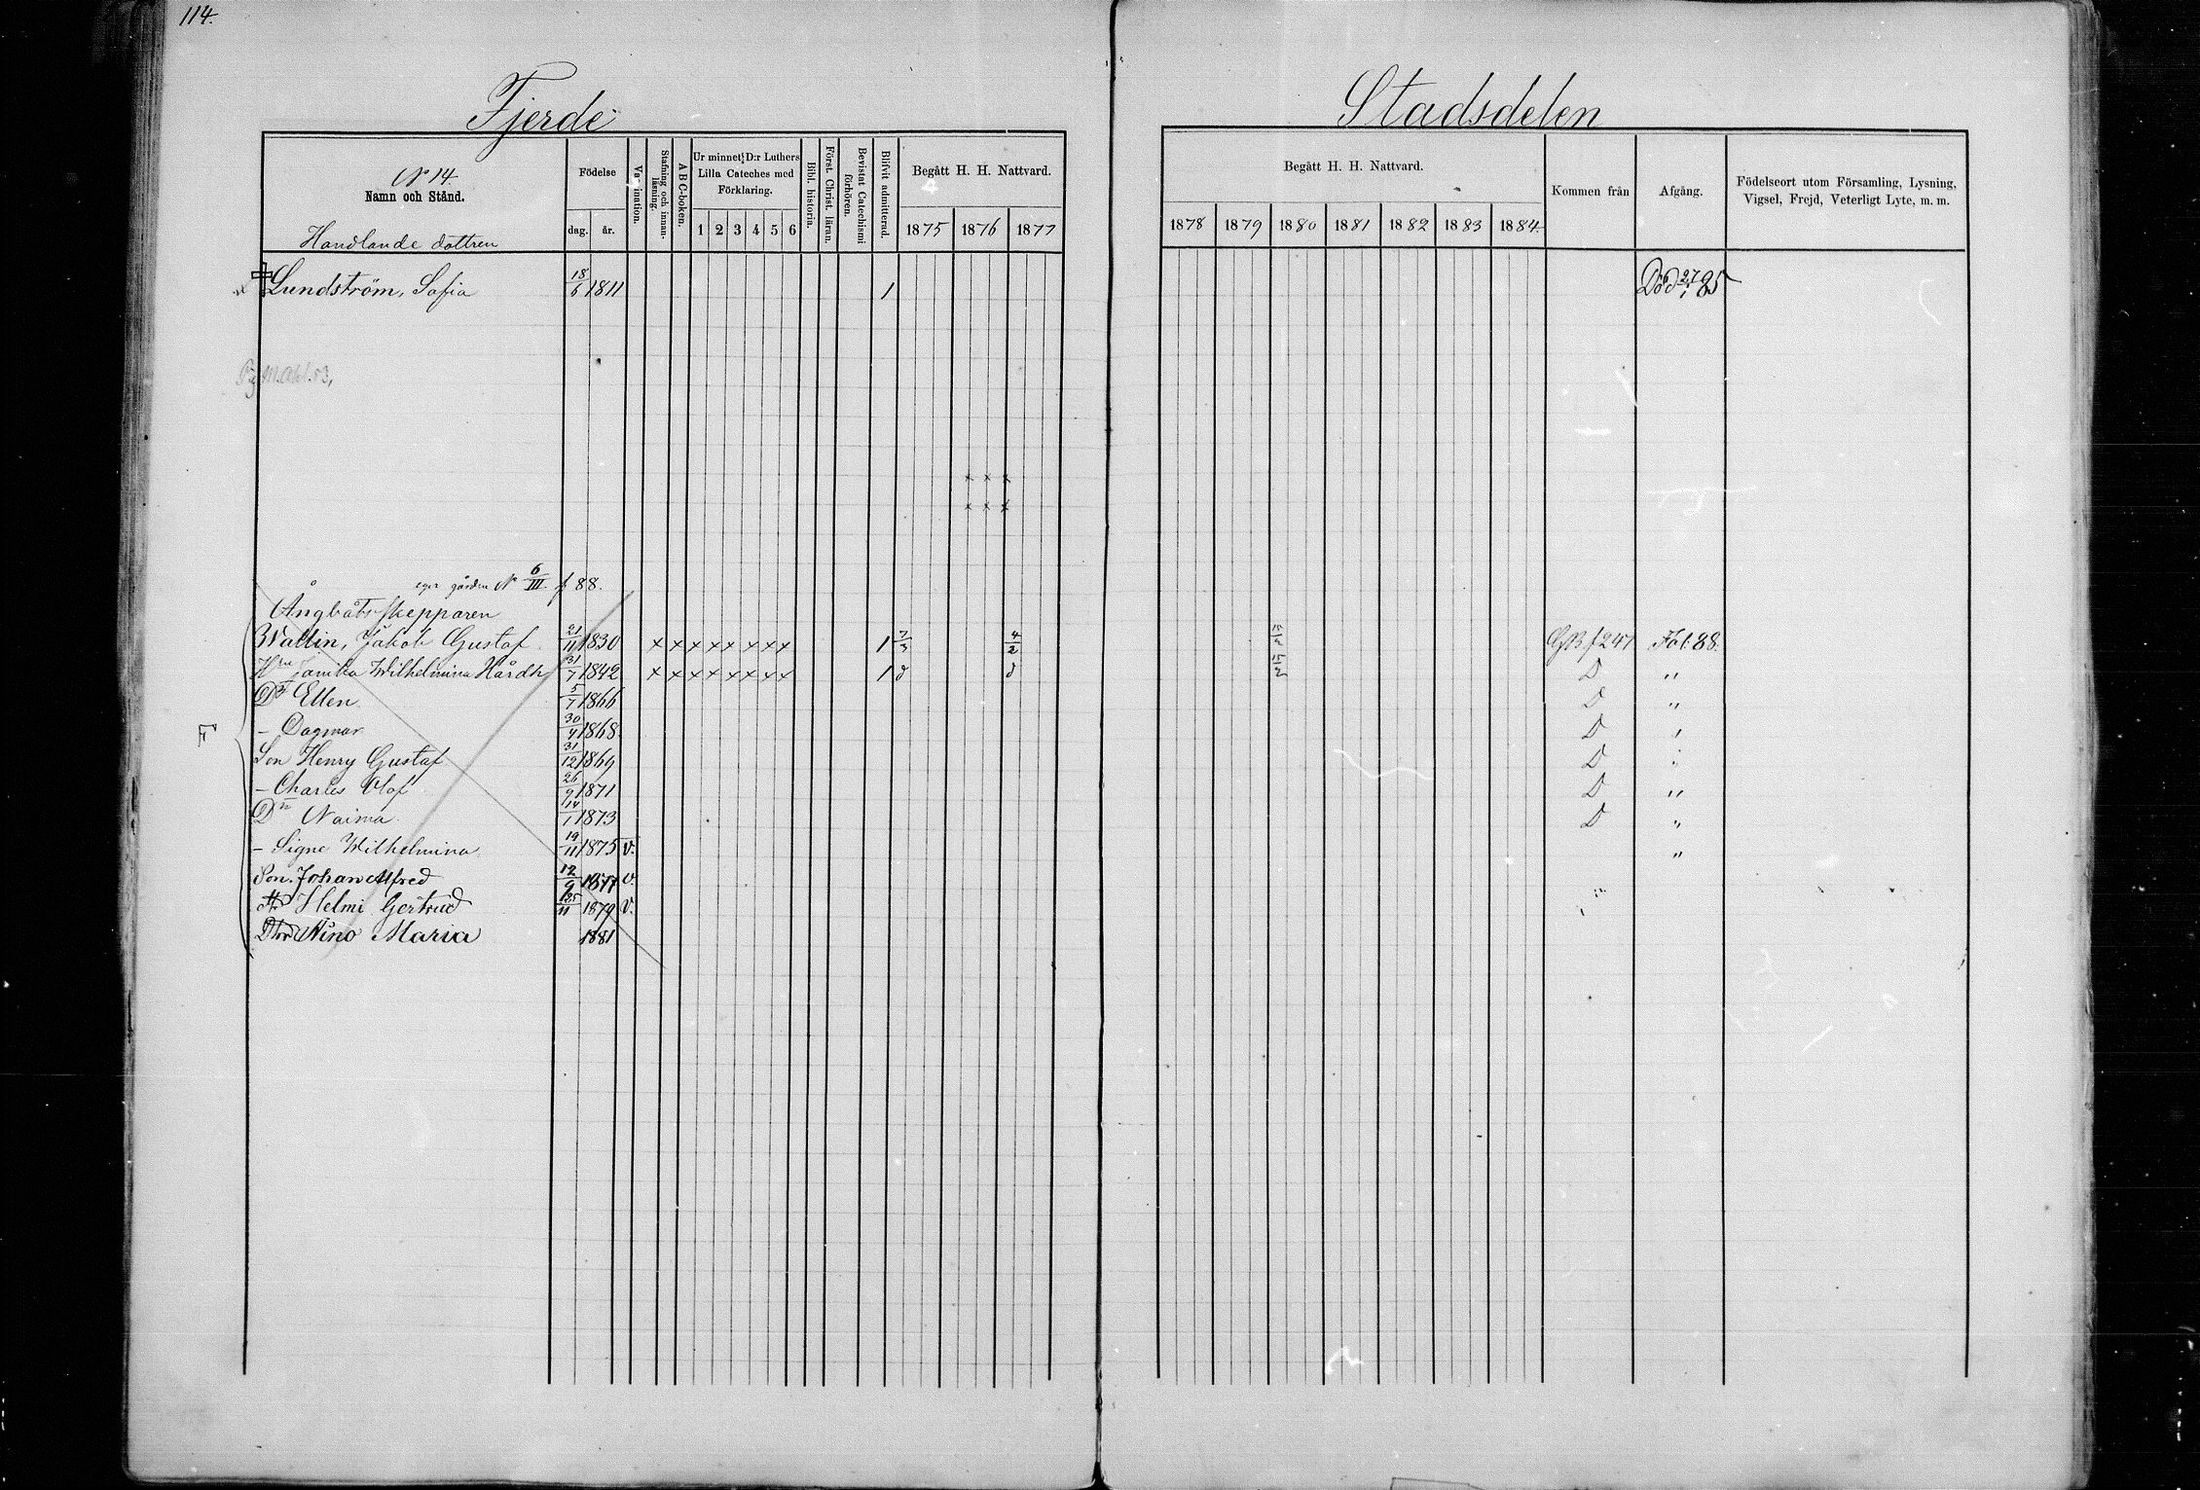 114.
Fjerde
Stadsdelen
N 14.
Namn och Stånd.
Handlande dottren
Födelse
dag. år.
Vaccination.
Stafning och innanläsning.
A B C-boken.
Ur minnet D:r Luthers
Lilla Cateches med
Förklaring.
1 2 3 4 5 6
Bibl. historia.
Först. Christ. läran.
Bevistat Catechismi förhören.
Blifvit admitterad.
Begått H. H. Nattvard.
1875 1876 1877
Begått H. H. Nattvard.
1878 1879 1880 1881 1882 1883 1884
Kommen från
Afgång.
Födelseort utom Församling, Lysning,
Vigsel, Frejd, Veterligt Lyte, m. m.
Lundström, Sofia 18/6 1811 1 Död 27/1 85
x x x
x x x
eger gården N 6/III. f 88.
Ångbåtsskepparen
Wallin, Jakob Gustaf 21/11 1830 x x x x x x x x 1 7/3 4/2 GB f 247 Fol. 88.
Hu Janika Wilhelmina Hårdh 31/7 1842 x x x x x x x x 1 d d D "
Dr Ellen 5/7 1866 D "
- Dagmar 30/4 1868 D "
Son Henry Gustaf 31/12 1869 D "
- Charles Olof 26/9 1871 D "
Dr Naima 14/1 1873 D "
- Signe Wilhelmina 19/11 1875 v. "
Son. Johan Alfred 12/9 1877 v.
Helmi Gertrud 25/11 1879 v.
Dtr Aino Maria 1881
F